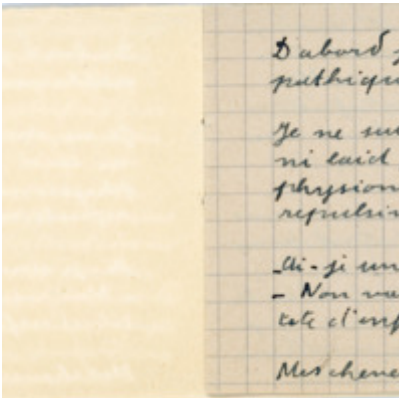 D'abord j
pathique
Je ne sui
ni laid
physion
repulsiv
- Ai-je un
- Non vo
tete d'enf
Mes cheve